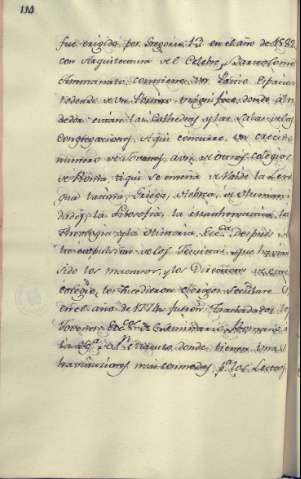 110
fue erigido por Gregorio 13 en el año de 1582
con Arquitectura del Celebre, Bartolome
Ammanato, contiene un Patio espacio
rodeado de un Portico magnifico, donde al re
dedor estan las Cathedras y las Salas de las
Congregaciones. Aqui concurre un crecido
numero de de otros Colegios
de Roma, y qui se enseña de valde la Len
gua latina, Griega, Hebrea, de Humani
dades, la Filosofia, la Mathematica, la
Theologia y la Despues
la expulsion de los Jesuitas, que havian
sido los maestros, y los Directores de este
colegio, le sucedieron Clerigos Seculares
en el año de 1774 fueron trasladados los
Jovenes del Seminario Romano
donde tienen unas
havitaciones mas comodas p.ª las Lectos